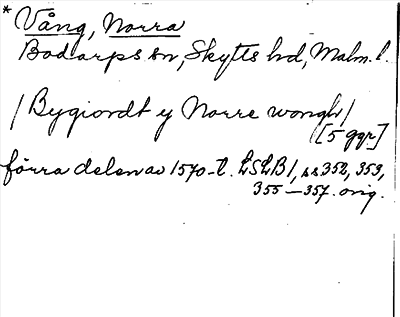 * Vång, Norra
Bodarps sn, Skytts hd, Malm. l.
/ Bygiordt y Norre wongh /
[5 ggr]
förra delen av 1570-t. LSLB 1, ss 352, 353,
355–357. orig.